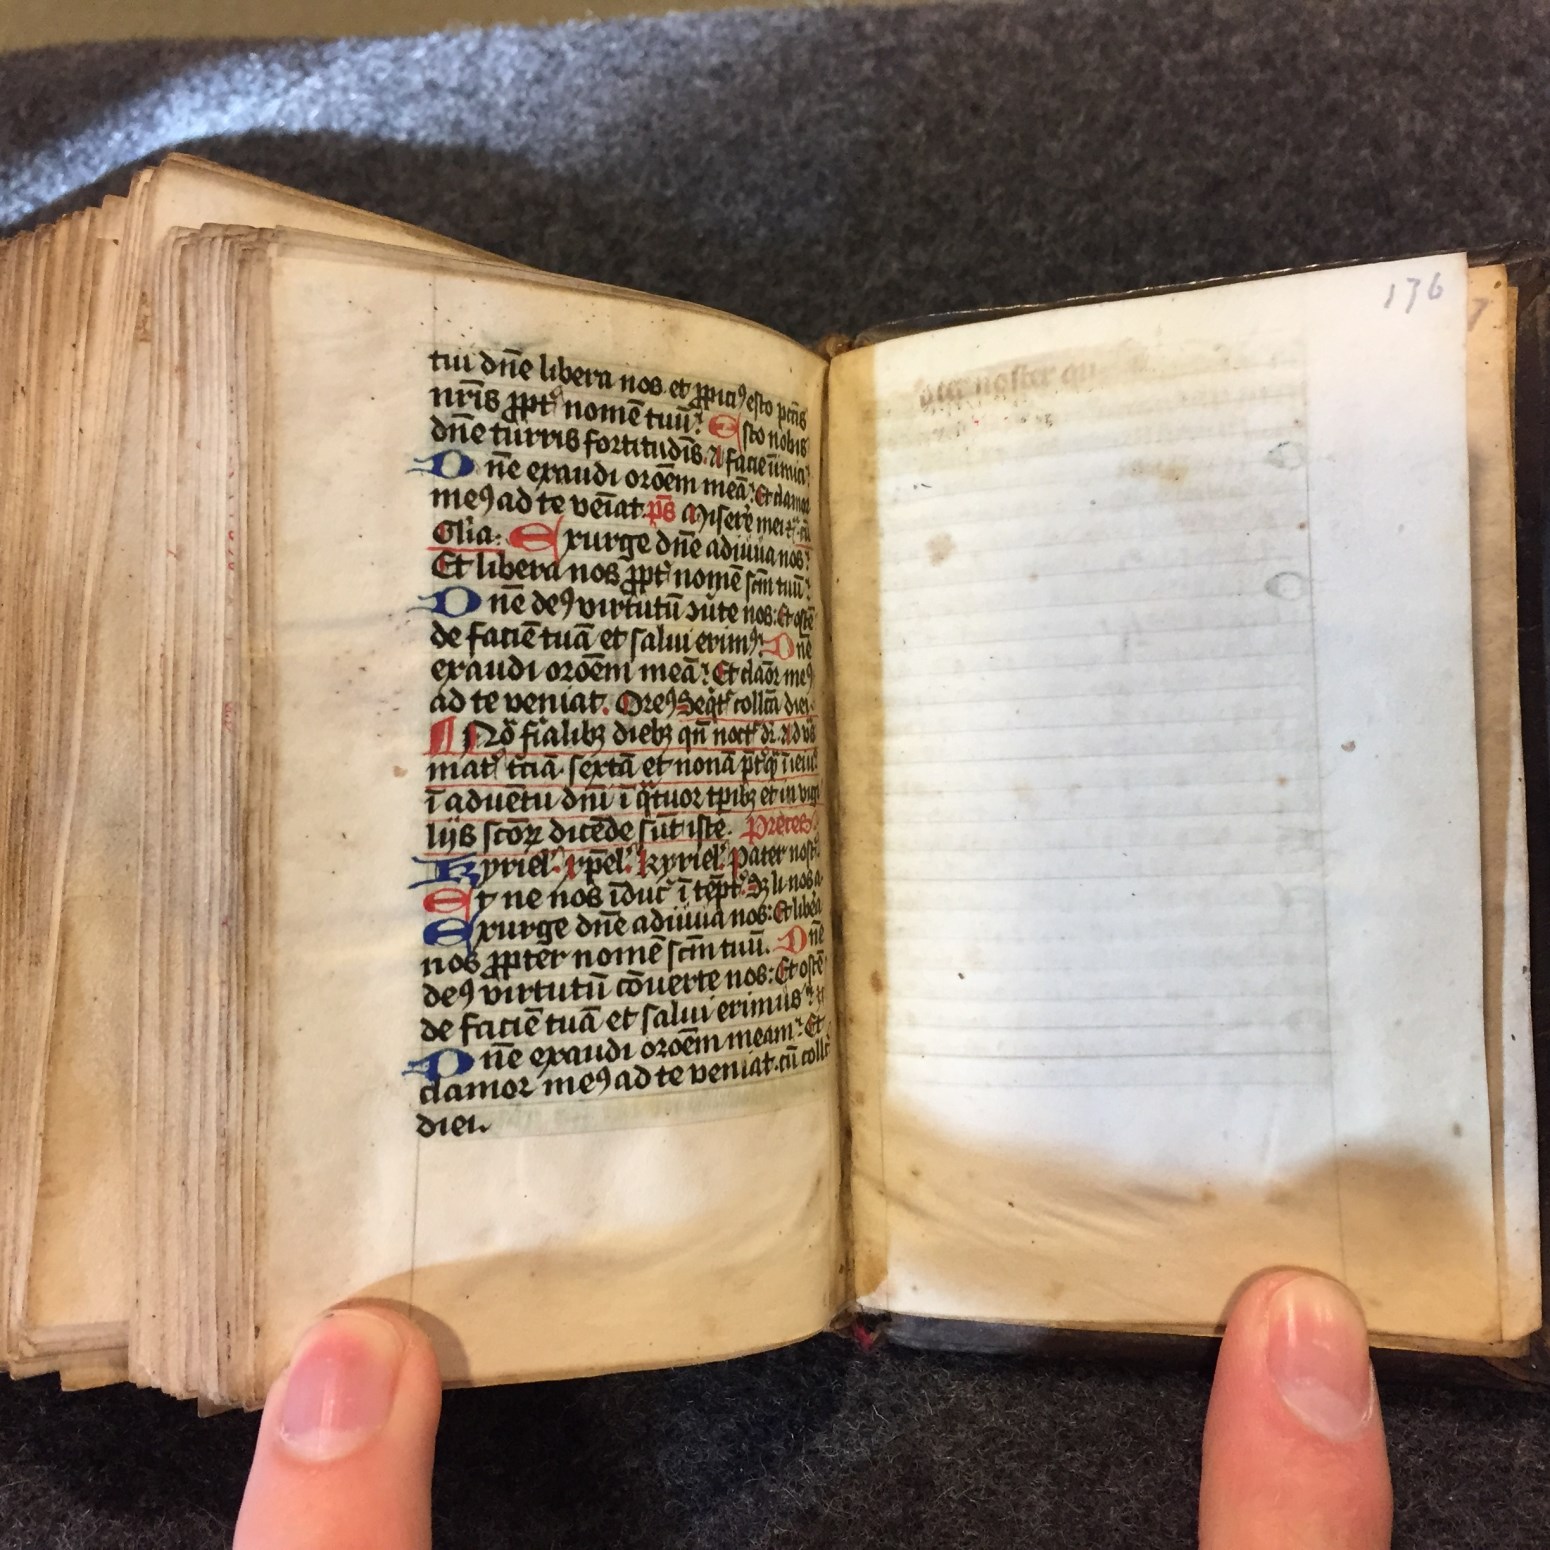 tui dn̄e libera nos et ꝓpiciꝰ esto pctīs
nr̄is ꝓpt nomē tuū. Esto nobis
dn̄e turris fortitudīs. A facie inimici
Dn̄e exaudi oroēm meā. Et clamor
meꝰ ad te veīat. ps̄ Miserē mei
Glīa. Exurge dn̄e adiuua nos
Et libera nos ꝓpt nomē scm̄ tuū.
Dn̄e deꝰ virtutū ꝯūte nos: Et ostē
de faciē tuā et salui erimꝰ. Dn̄e
exaudi oroēm meā. Et claōr meꝰ
ad te veniat. Oreꝰ Seqt collcā diei.
Nō fialibꝫ diebꝫ qn̄ noct dr̄. Ad vs̄
mat tciā sextā et nonā
ī aduētu dn̄i ī qtuor tp̄ibꝫ et in vigi
liis scōꝝ dicēde sūt iste. Preces
Kyriel. xp̄el. kyriel. Pater nost
Et ne nos īduc ī tēpt. Sꝫ li nos a
Exurge dn̄e adiuua nos: Et libera
nos ꝓpter nomē scm̄ tuū. Dn̄e
deꝰ virtutū cōuerte nos: Et ostē
de faciē tuā et salui erimus
Dn̄e exaudi oroēm meam. Et
clamor meꝰ ad te veniat. cū collc
diei.
136
7